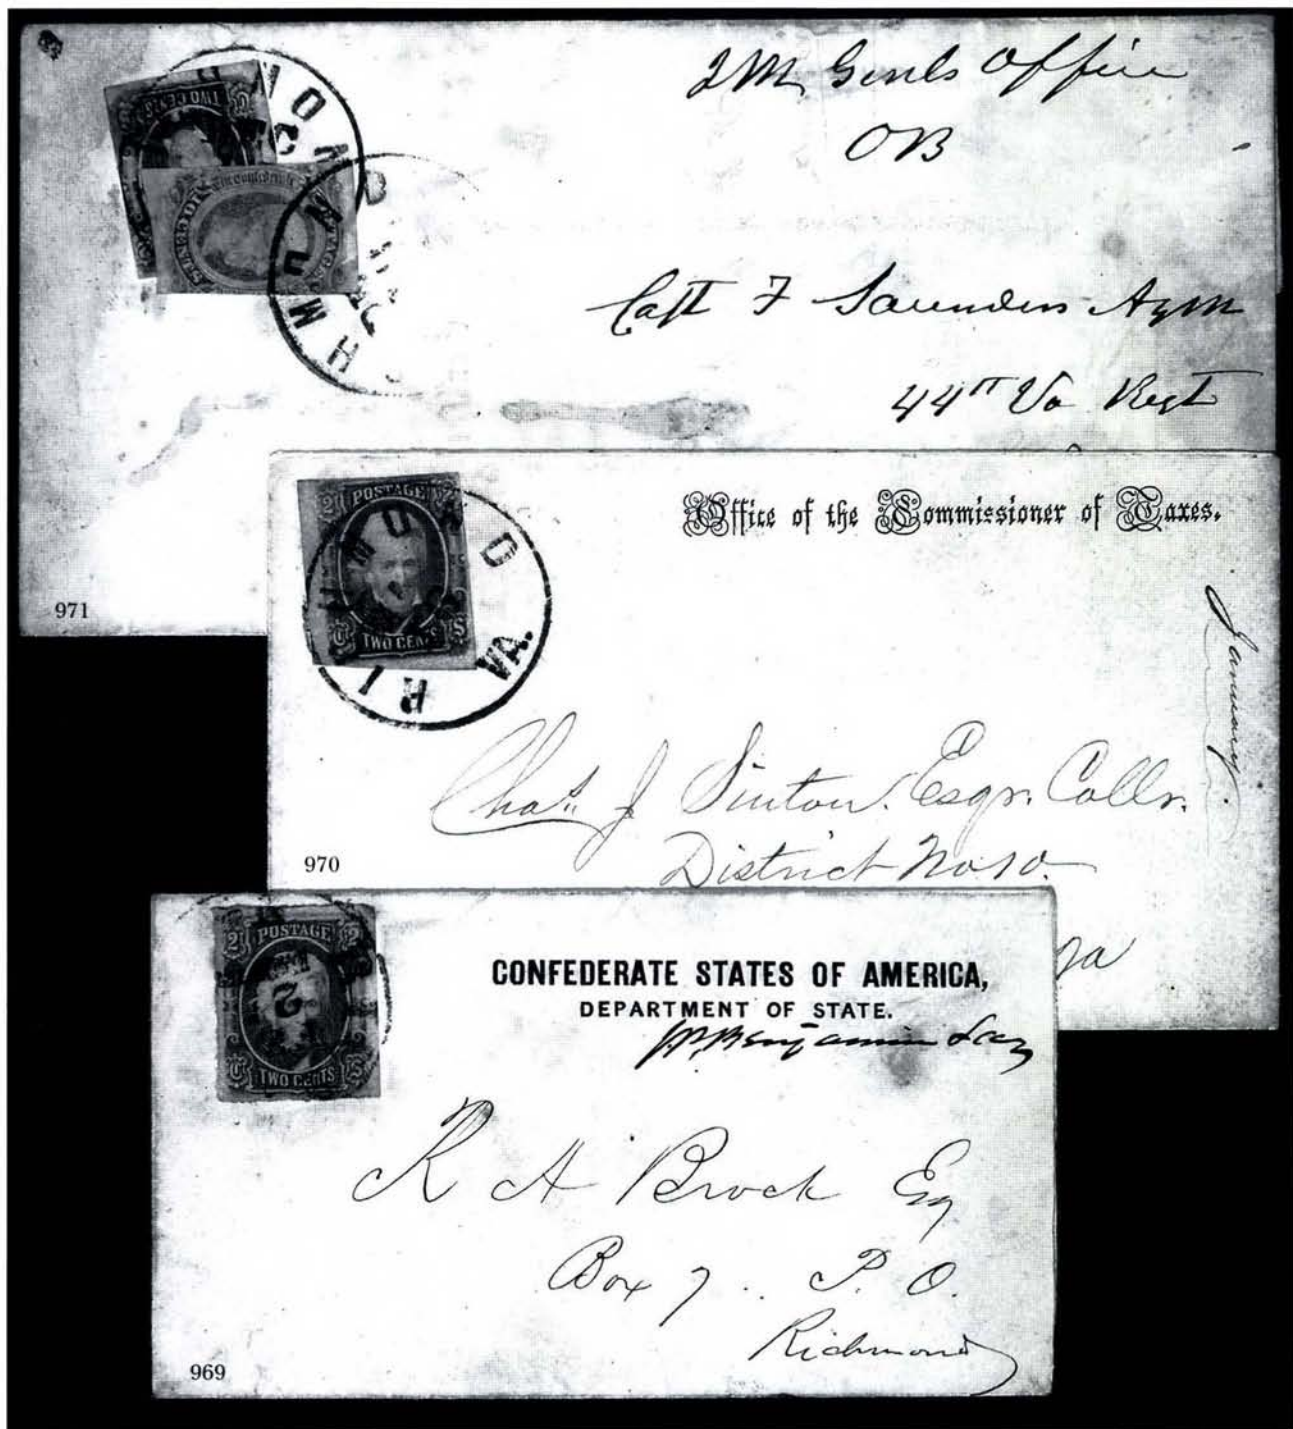 TWO CENTS
TEN CENTS
The Confederate
RICHMOND
Q M Genls Office
OB
Capt F Saunders AQM
44th Va Regt
971
2 POSTAGE 2
TWO CENTS
RICHMOND VA.
Office of the Commissioner of Taxes.
January.
Chas. J Sinton. Esqr. Collr.
District No 10.
970
2 POSTAGE 2
TWO CENTS
2
CONFEDERATE STATES OF AMERICA,
DEPARTMENT OF STATE.
J.P. Benjamin Secy
R A Brock Esq
Box 7 .. P. O.
Richmond
969